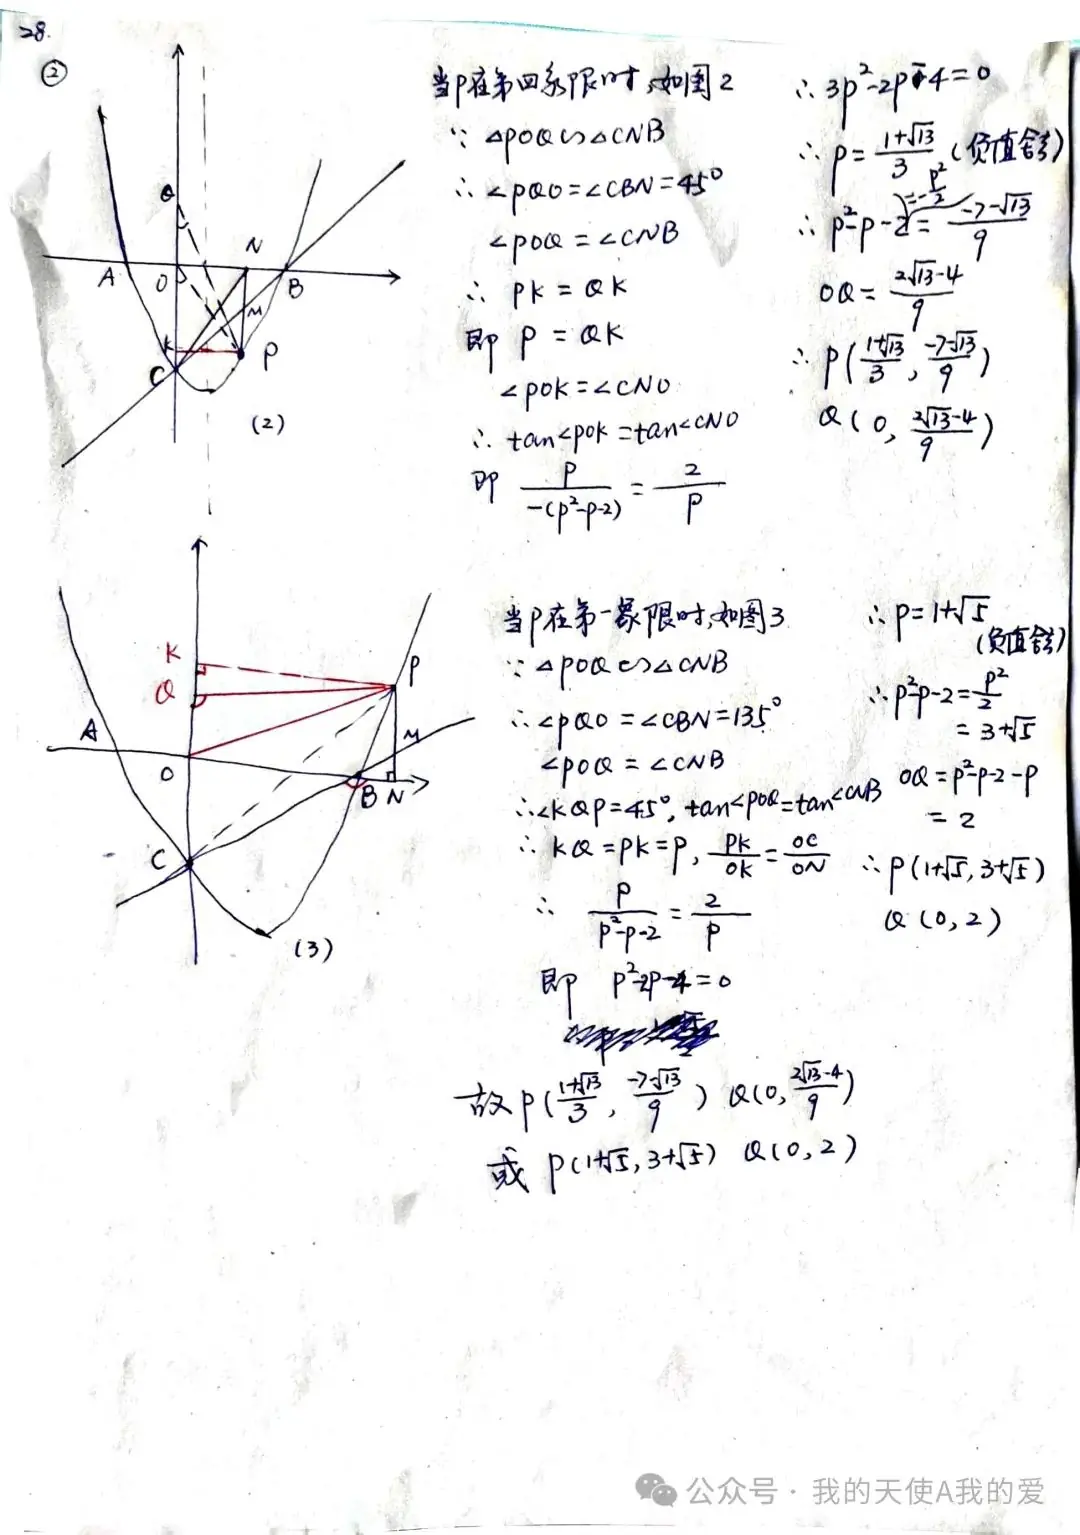 28.
②
Q
A
O
N
B
M
K
C
P
(2)
当P在第四象限时,如图2
∵ △POQ∽△CNB
∴ ∠PQO=∠CBN=45°
∠POQ=∠CNB
∴ PK=QK
即 P=QK
∠POK=∠CNO
∴ tan∠POK=tan∠CNO
即 p/-(p²-p-2) = 2/p
∴ 3p²-2p-4=0
∴ p=(1+√13)/3 (负值舍)
∴ p²-p-2=-p²/2=(-7-√13)/9
OQ=(2√13-4)/9
∴ P((1+√13)/3, (-7-√13)/9)
Q(0, (2√13-4)/9)
K
Q
P
A
O
M
B
N
C
(3)
当P在第一象限时,如图3
∵ △POQ∽△CNB
∴ ∠PQO=∠CBN=135°
∠POQ=∠CNB
∴∠KQP=45°, tan∠POQ=tan∠CNB
∴ KQ=PK=P, PK/OK=OC/ON
∴ p/(p²-p-2)=2/p
即 p²-2p-4=0
∴ p=1+√5
(负值舍)
∴ p²-p-2=p²/2
=3+√5
OQ=p²-p-2-p
=2
∴ P(1+√5, 3+√5)
Q(0, 2)
故P((1+√13)/3, (-7-√13)/9) Q(0, (2√13-4)/9)
或 P(1+√5, 3+√5) Q(0, 2)
公众号·我的天使A我的爱